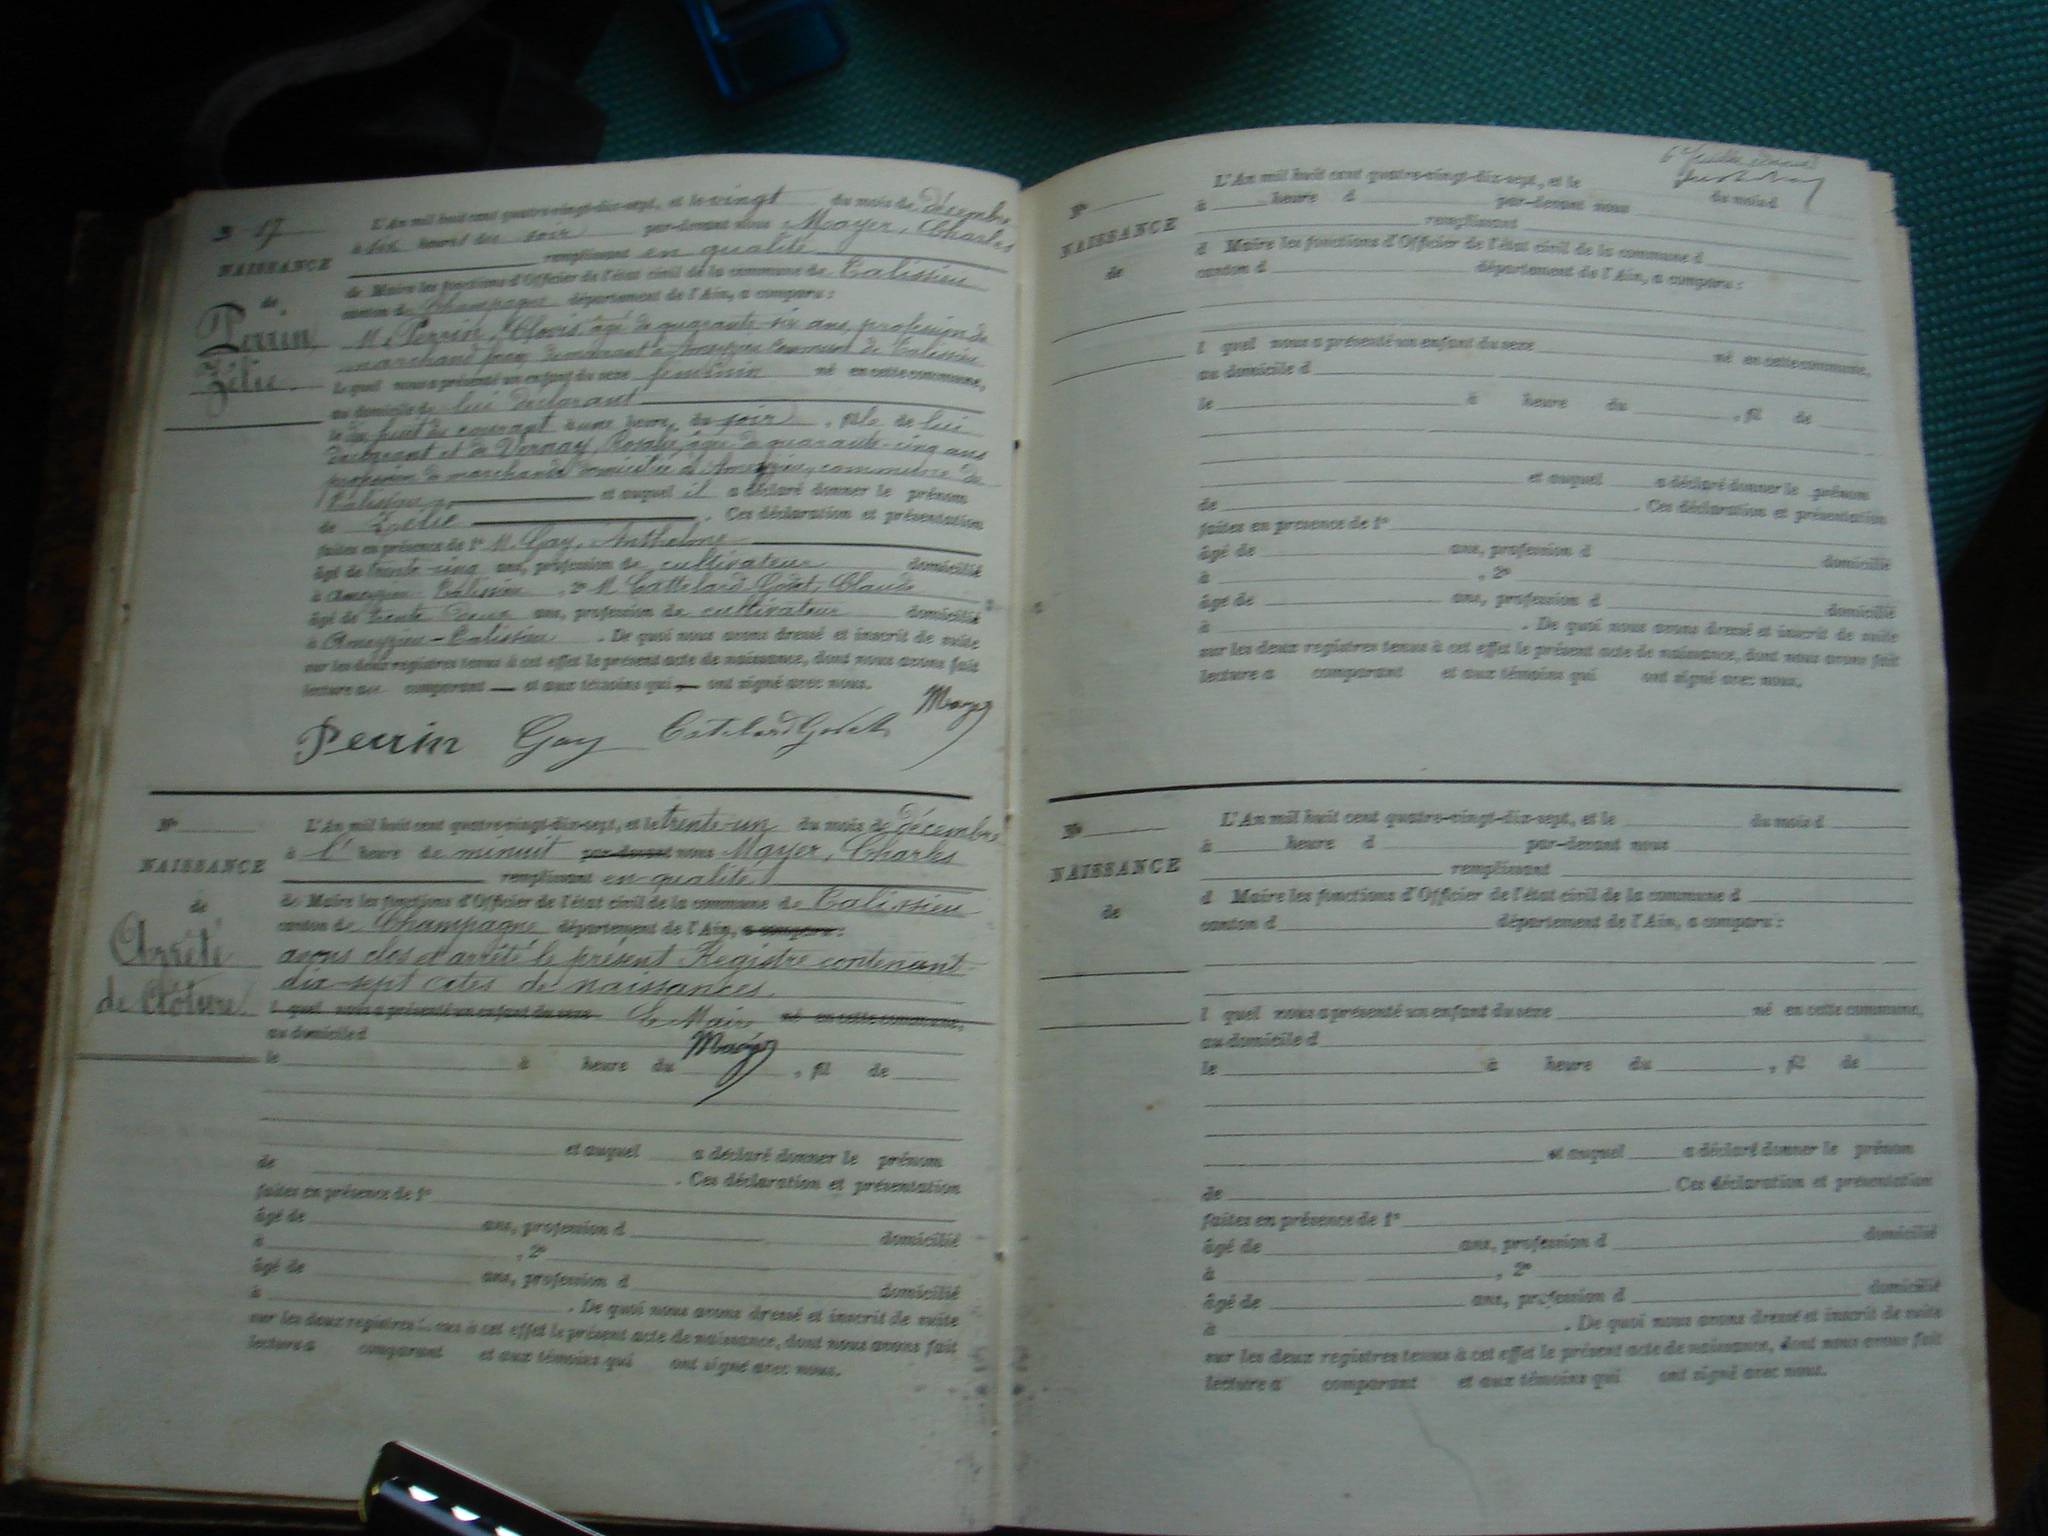 17
NAISSANCE
de
Perrin
Zélie
L'An mil huit cent quatre-vingt-dix-sept, et le vingt du mois de décembre
à six heures du soir par-devant nous Mayer, Charles
remplissant en qualité
de Maire les fonctions d'Officier de l'état civil de la commune de Talissieu
canton de Champagne département de l'Ain, a comparu :
M. Perrin, Clovis âgé de quarante-six ans, profession de
marchand demeurant à Ameyzieu commune de Talissieu
lequel nous a présenté un enfant du sexe féminin né en cette commune,
au domicile de lui déclarant
le dix huit du courant à une heure du soir, fille de lui
déclarant et de Vernay, Rosalie, âgée de quarante-cinq ans
profession de marchande domiciliée à Ameyzieu, commune de
Talissieu, et auquel il a déclaré donner le prénom
de Zélie. Ces déclaration et présentation
faites en présence de 1° M. Gay, Anthelme
âgé de trente-cinq ans, profession de cultivateur domicilié
à Ameyzieu-Talissieu, 2° M. Cattelard Godet, Claude
âgé de trente deux ans, profession de cultivateur domicilié
à Ameyzieu-Talissieu. De quoi nous avons dressé et inscrit de suite
sur les deux registres tenus à cet effet le présent acte de naissance, dont nous avons fait
lecture au comparant et aux témoins qui ont signé avec nous.
Perrin Gay Catelard Godet Mayer
N°
NAISSANCE
de
Arrêté
de Clôture
L'An mil huit cent quatre-vingt-dix-sept, et le trente-un du mois de décembre
à l' heure de minuit par-devant nous Mayer, Charles
remplissant en qualité
de Maire les fonctions d'Officier de l'état civil de la commune de Talissieu
canton de Champagne département de l'Ain, a comparu :
avons clos et arrêté le présent Registre contenant
dix-sept actes de naissances.
l quel nous a présenté un enfant du sexe Le Maire né en cette commune,
au domicile d
Mayer
le à heure du , fil de
et auquel a déclaré donner le prénom
de . Ces déclaration et présentation
faites en présence de 1°
âgé de ans, profession d domicilié
à , 2°
âgé de ans, profession d domicilié
à . De quoi nous avons dressé et inscrit de suite
sur les deux registres tenus à cet effet le présent acte de naissance, dont nous avons fait
lecture a comparant et aux témoins qui ont signé avec nous.
N°
NAISSANCE
de
L'An mil huit cent quatre-vingt-dix-sept, et le du mois d
à heure d par-devant nous
remplissant
d Maire les fonctions d'Officier de l'état civil de la commune d
canton d département de l'Ain, a comparu :
l quel nous a présenté un enfant du sexe né en cette commune,
au domicile d
le à heure du , fil de
et auquel a déclaré donner le prénom
de . Ces déclaration et présentation
faites en présence de 1°
âgé de ans, profession d domicilié
à , 2°
âgé de ans, profession d domicilié
à . De quoi nous avons dressé et inscrit de suite
sur les deux registres tenus à cet effet le présent acte de naissance, dont nous avons fait
lecture a comparant et aux témoins qui ont signé avec nous.
N°
NAISSANCE
de
L'An mil huit cent quatre-vingt-dix-sept, et le du mois d
à heure d par-devant nous
remplissant
d Maire les fonctions d'Officier de l'état civil de la commune d
canton d département de l'Ain, a comparu :
l quel nous a présenté un enfant du sexe né en cette commune,
au domicile d
le à heure du , fil de
et auquel a déclaré donner le prénom
de . Ces déclaration et présentation
faites en présence de 1°
âgé de ans, profession d domicilié
à , 2°
âgé de ans, profession d domicilié
à . De quoi nous avons dressé et inscrit de suite
sur les deux registres tenus à cet effet le présent acte de naissance, dont nous avons fait
lecture a comparant et aux témoins qui ont signé avec nous.